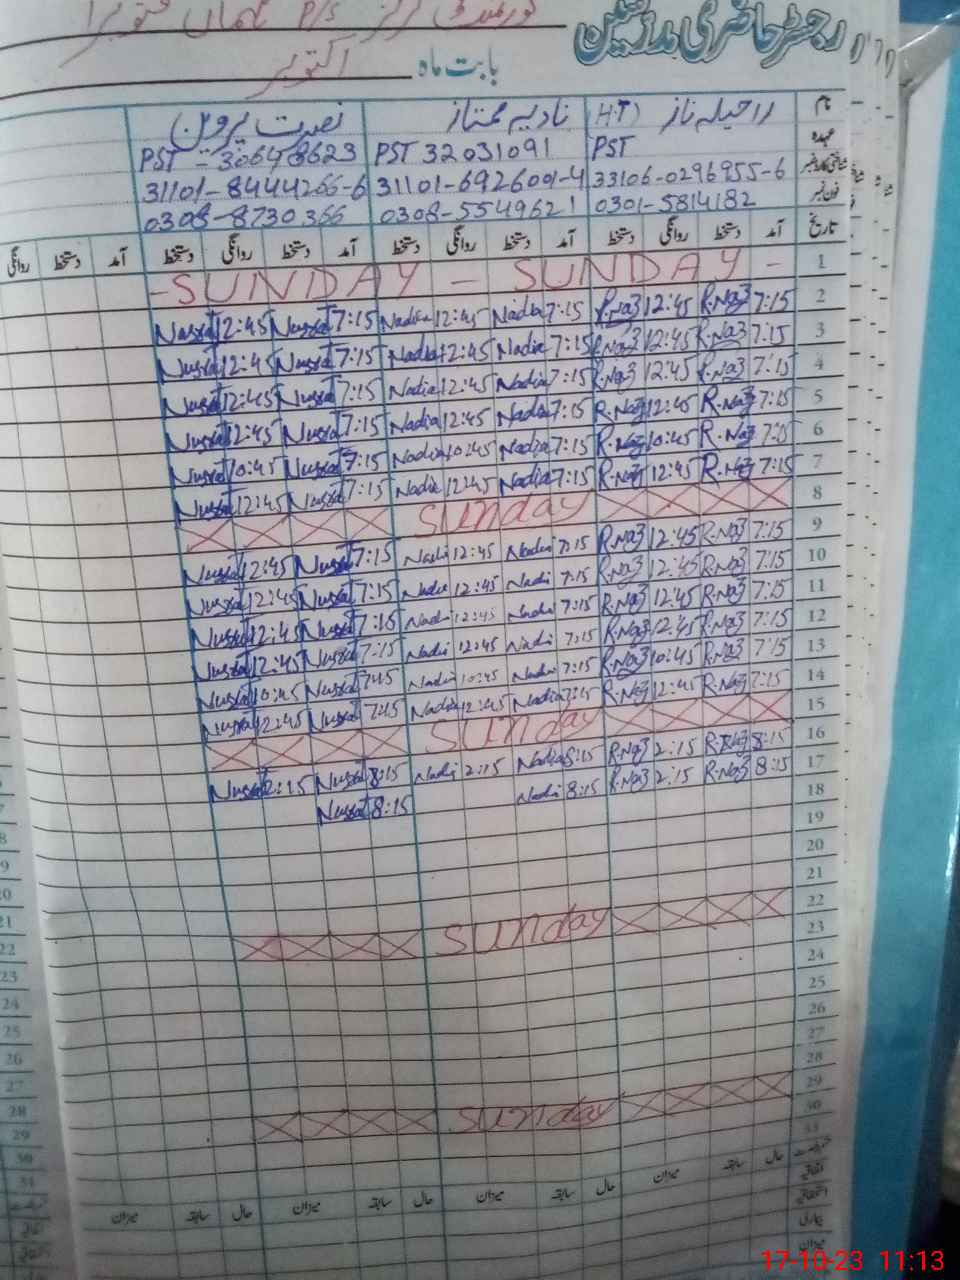 رجسٹر حاضری مدرسین
بابت ماہ اکتوبر
نام راحیلہ ناز (H.T) نادیہ ممتاز نصرت پروین
عہدہ PST PST 32031091 PST - 30648623
شناختی کارڈ نمبر 33106-0296955-6 31101-6926001-4 31101-8444266-6
فون نمبر 0301-5814182 0308-5549621 0308-8730366
تاریخ آمد دستخط روانگی دستخط آمد دستخط روانگی دستخط آمد دستخط روانگی دستخط آمد دستخط روانگی
1 - SUNDAY - SUNDAY -
2 7:15 R.Naz 12:45 R.Naz 7:15 Nadia 12:45 Nadia 7:15 Nusrat 12:45 Nusrat
3 7:15 R.Naz 12:45 R.Naz 7:15 Nadia 12:45 Nadia 7:15 Nusrat 12:45 Nusrat
4 7:15 R.Naz 12:45 R.Naz 7:15 Nadia 12:45 Nadia 7:15 Nusrat 12:45 Nusrat
5 7:15 R.Naz 12:45 R.Naz 7:15 Nadia 12:45 Nadia 7:15 Nusrat 12:45 Nusrat
6 7:15 R.Naz 10:45 R.Naz 7:15 Nadia 10:45 Nadia 7:15 Nusrat 10:45 Nusrat
7 7:15 R.Naz 12:45 R.Naz 7:15 Nadia 12:45 Nadia 7:15 Nusrat 12:45 Nusrat
8 Sunday
9 7:15 R.Naz 12:45 R.Naz 7:15 Nadia 12:45 Nadi 7:15 Nusrat 12:45 Nusrat
10 7:15 R.Naz 12:45 R.Naz 7:15 Nadi 12:45 Nadia 7:15 Nusrat 12:45 Nusrat
11 7:15 R.Naz 12:45 R.Naz 7:15 Nadia 12:45 Nadi 7:15 Nusrat 12:45 Nusrat
12 7:15 R.Naz 12:45 R.Naz 7:15 Nadi 12:45 Nadi 7:15 Nusrat 12:45 Nusrat
13 7:15 R.Naz 10:45 R.Naz 7:15 Nadi 10:45 Nadi 7:15 Nusrat 10:45 Nusrat
14 7:15 R.Naz 12:45 R.Naz 7:15 Nadia 12:45 Nadia 7:15 Nusrat 12:45 Nusrat
15 Sunday
16 8:15 R.Naz 2:15 R.Naz 8:15 Nadia 2:15 Nadi 8:15 Nusrat 2:15 Nusrat
17 8:15 R.Naz 2:15 R.Naz 8:15 Nadi 8:15 Nusrat
18
19
20
21
22 Sunday
23
24
25
26
27
28
29 Sunday
30
31
حال سابقہ میزان حال سابقہ میزان حال سابقہ میزان حال سابقہ میزان
اتفاقیہ
استحقاقی
بیماری
میزان
17-10-23 11:13